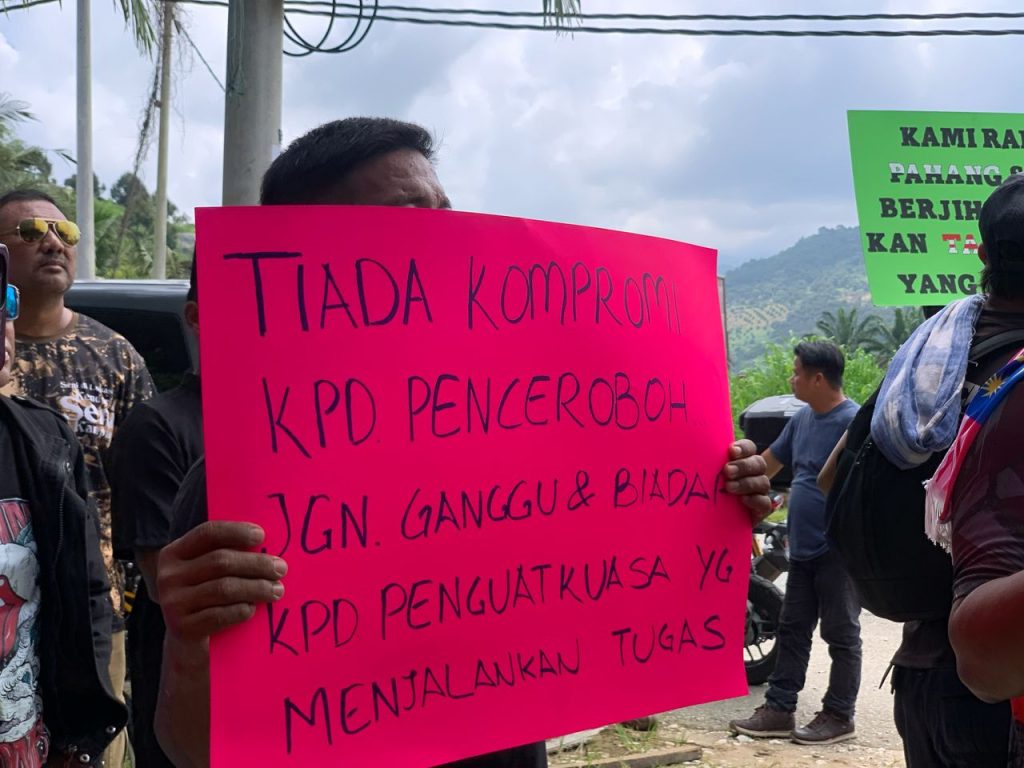 TIADA KOMPROMI
KPD. PENCEROBOH..
JGN. GANGGU & BIADAP
KPD PENGUATKUASA YG
MENJALANKAN TUGAS
KAMI
PAHANG
YANG